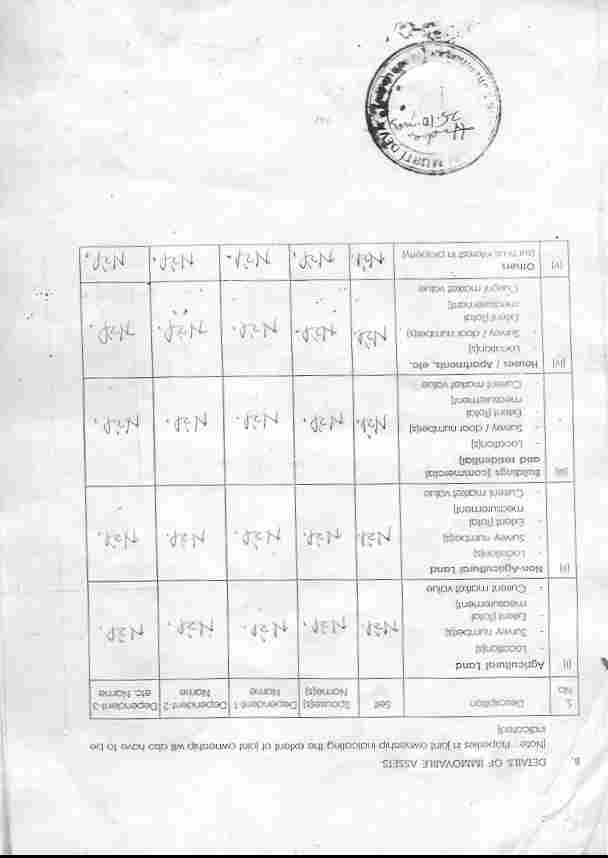 B. DETAILS OF IMMOVABLE ASSETS
[Note : Properties in joint ownership indicating the extent of joint ownership will also have to be
indicated]
S. No Description Self Spouse(s) Name(s) Dependent-1 Name Dependent-2 Name Dependent-3 etc. Name
(i) Agricultural Land Nil. Nil. Nil. Nil. Nil.
- Location(s)
- Survey number(s)
- Extent [Total
measurement]
- Current market value
(ii) Non-Agricultural Land Nil. Nil. Nil. Nil. Nil.
- Location(s)
- Survey number(s)
- Extent [Total
measurement]
- Current market value
(iii) Buildings [commercial
and residential] Nil. Nil. Nil. Nil. Nil.
- Location(s)
- Survey / door number(s)
- Extent [Total
measurement]
- Current market value
(iv) Houses / Apartments, etc. Nil. Nil. Nil. Nil. Nil.
- Location(s)
- Survey / door number(s)
- Extent [Total
measurement]
- Current market value
(v) Others Nil. Nil. Nil. Nil. Nil.
[such as interest in property]
MURTI DEVI
25.10.